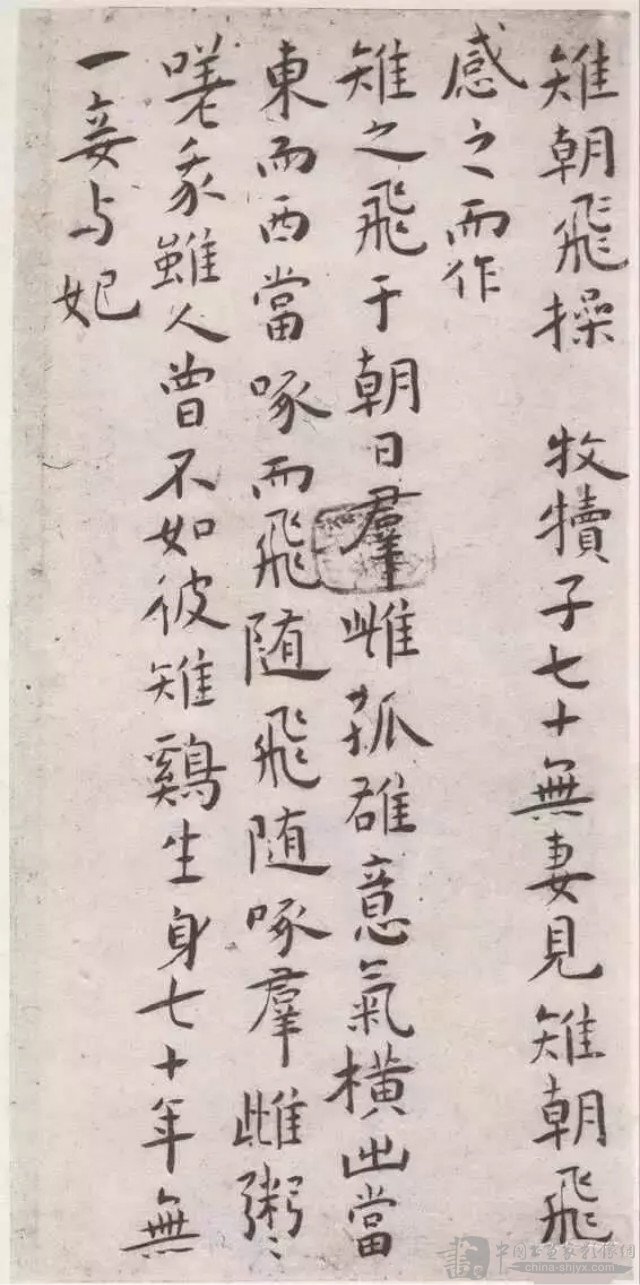 雉朝飛操 牧犢子七十無妻見雉朝飛
感之而作
雉之飛于朝日羣雌孤雄意氣橫出當
東而西當啄而飛随飛随啄羣雌粥〻
嗟我雖人曾不如彼雉鷄生身七十年無
一妾与妃
china-shjyx.com